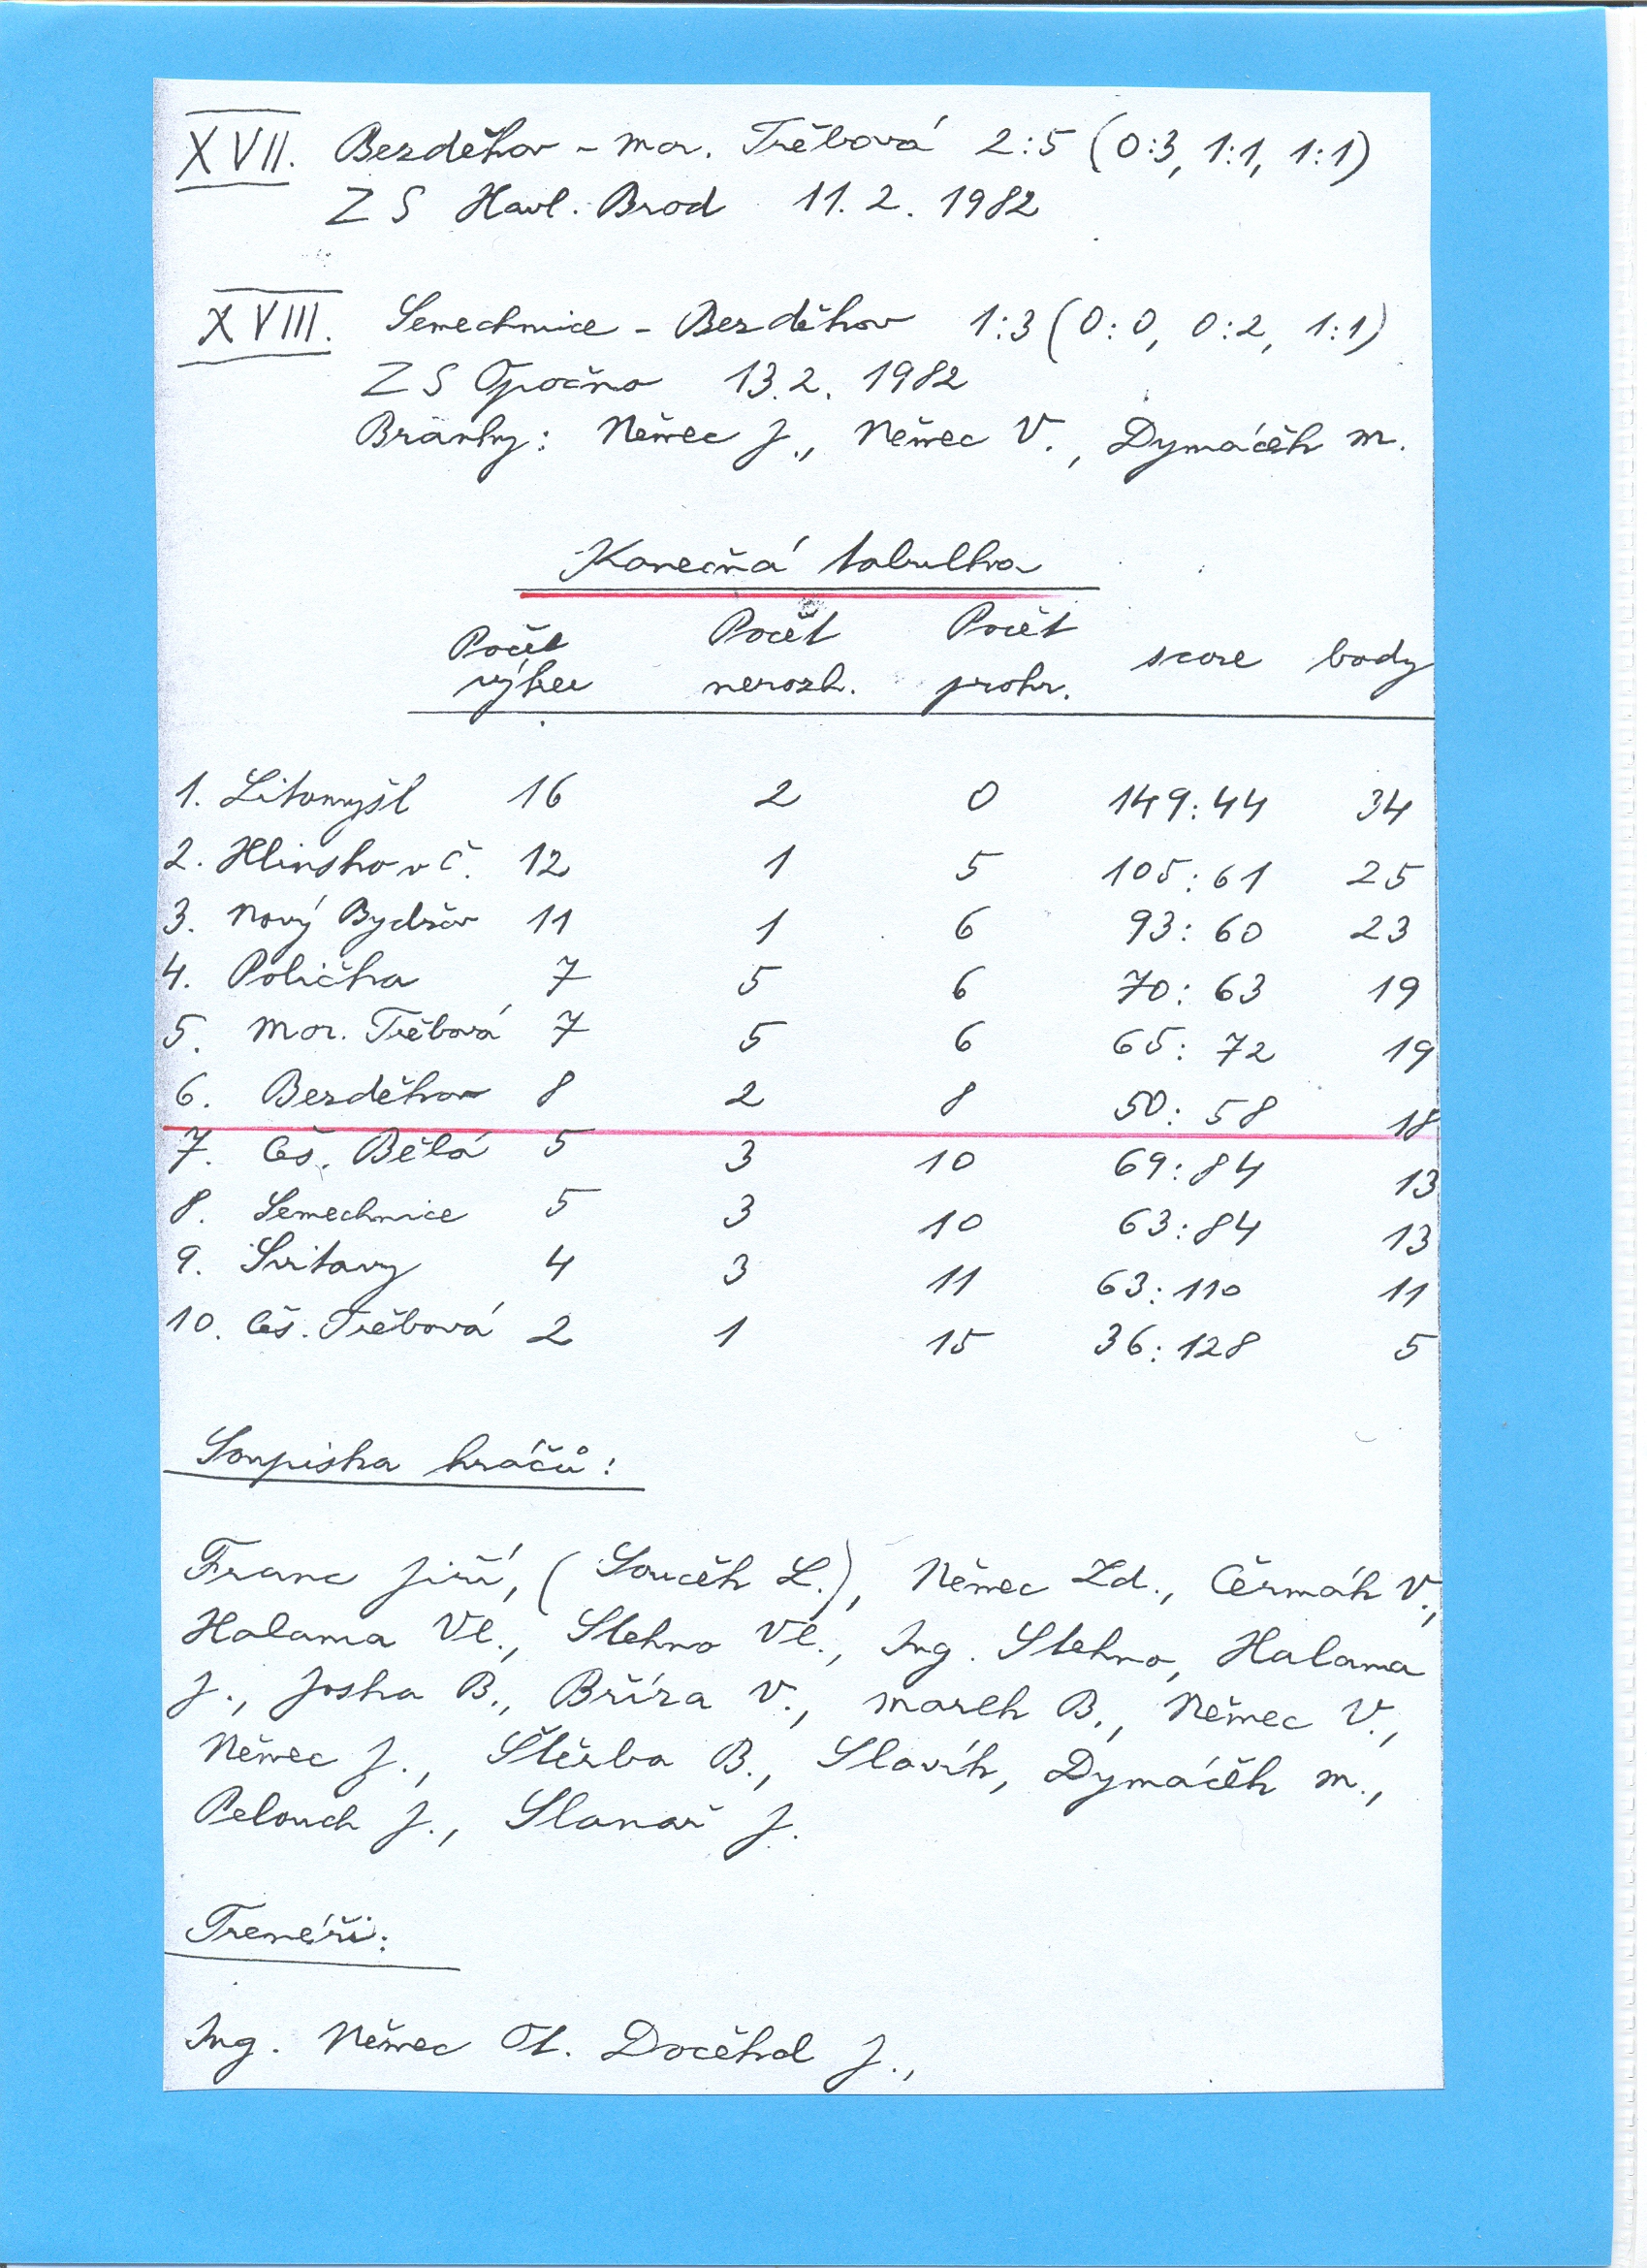 XVII. Bezděkov - Mor. Třebová 2:5 (0:3, 1:1, 1:1)
ZS Havl. Brod 11.2.1982
XVIII. Semechnice - Bezděkov 1:3 (0:0, 0:2, 1:1)
ZS Opočno 13.2.1982
Branky: Němec J., Němec V., Dymáček M.
Konečná tabulka
Počet výher Počet nerozh. Počet prohr. score body
1. Litomyšl 16 2 0 149:44 34
2. Hlinsko v Č. 12 1 5 105:61 25
3. Nový Bydžov 11 1 6 93:60 23
4. Polička 7 5 6 70:63 19
5. Mor. Třebová 7 5 6 65:72 19
6. Bezděkov 8 2 8 50:58 18
7. Čes. Bělá 5 3 10 69:84 13
8. Semechnice 5 3 10 63:84 13
9. Svitavy 4 3 11 63:110 11
10. Čes. Třebová 2 1 15 36:128 5
Soupiska hráčů:
Franc Jiří, (Souček L.), Němec Zd., Čermák V.,
Halama Vl., Stehno Vl., Ing. Stehno, Halama
J., Joska B., Bříza V., Marek B., Němec V.,
Němec J., Štěrba B., Slavík, Dymáček M.,
Pelouch J., Slanař J.
Trenéři:
Ing. Němec Ot. Dočekal J.,